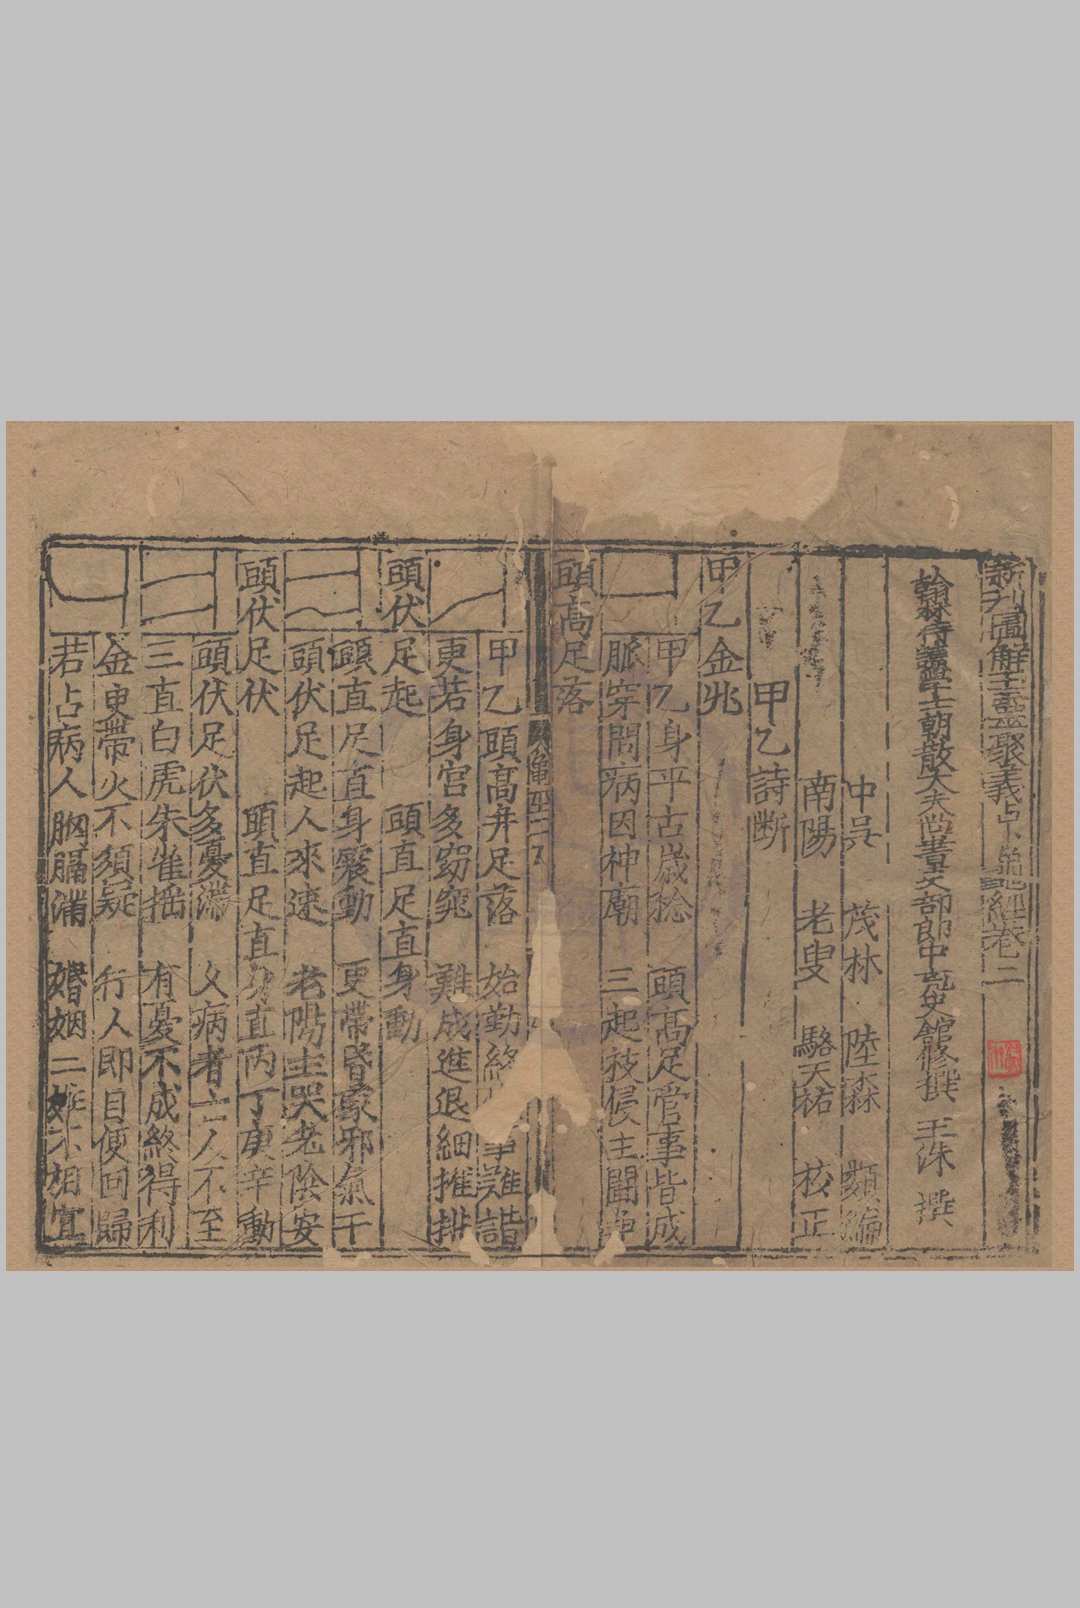 新刊圖解玉靈聚義占卜龜經卷二
翰林侍講學士朝散大夫尚書文部郎中充史館修撰王洙撰
中吳 茂林 陸森 類編
南陽 老叟 駱天祐 校正
甲乙詩斷
甲乙金兆
甲乙身平古歲稔 頭高足管事皆成
脈穿間病因神廟 三起被侵主鬪爭
頭高足落
龜巫二
甲乙頭高并足落 始勤終 事難諧
更若身宮多窈窕 難成進退細推排
頭伏足起 頭直足直身動
頭直足直身震動 更帶昏蒙邪氣干
頭伏足起人來速 老陽主哭老陰安
頭伏足伏 頭直足直身直丙丁庚辛動
頭伏足伏多憂滯 久病者亡人不至
三直白虎朱雀搖 有憂不成終得利
金更帶火不須疑 行人即目便回歸
若占病人胸膈滿 婚姻二姓不相宜